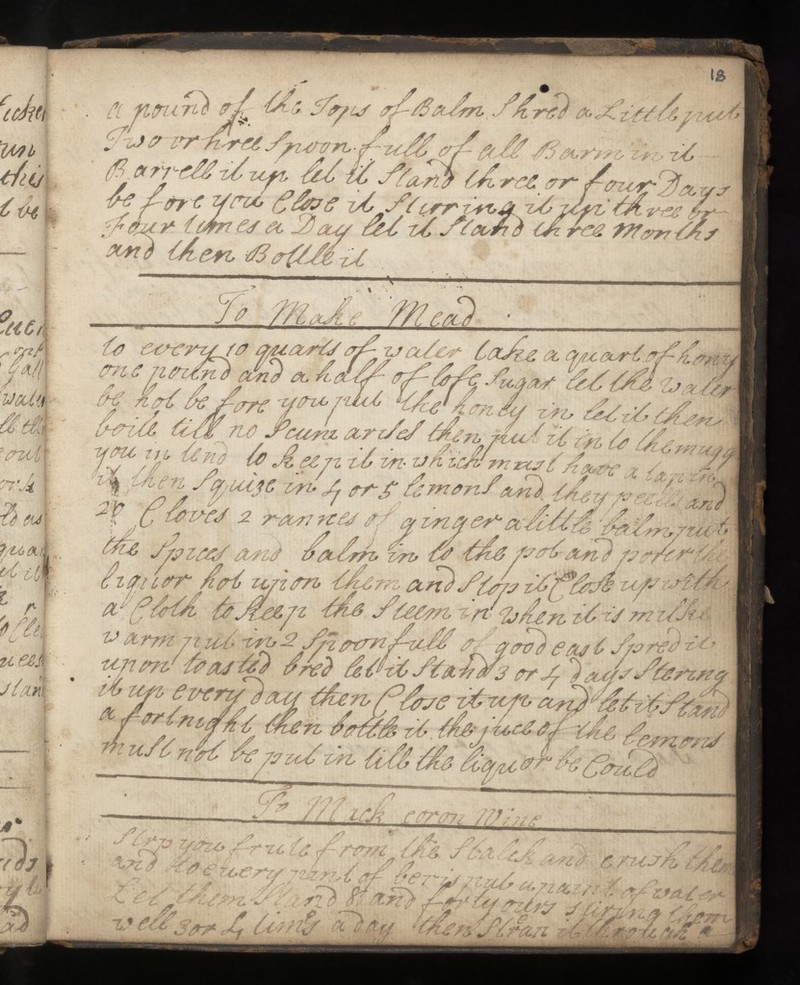 18
a pound of the Tops of Balm Shred a Little put
Two or hree Spoon full of all Barm in it
Barrell it up let it Stand three or four Days
be fore you Close it Sturring it up three or
Four times a Day let it Stand three Months
and then Bottle it
To Make Mead
to every 10 quarts of water take a quart of hony
one pound and a half of lofe Sugar let the water
be hot be fore you put the honey in let it then
boile till no Scum arises then put it in to the mugg
you in tend to Keep it in which must have a tap in
it then Squize in 4 or 5 lemons and they peells and
20 Cloves 2 rannees of ginger a little balm put
the Spices and balm in to the pot and porer the
liquor hot upon them and Stop it Close up with
a Cloth to Keep the Steem in when it is milke
warm put in 2 Spoonfull of good east Spred it
upon toasted bred let it Stand 3 or 4 days Stering
it up every day then Close it up and let it Stand
a fortnight then bottle it the juce of the lemons
must not be put in till the liquor be Could
To Mick coron Wine
Strp you frute from the Stalck and crush them
and to euery pint of beris put a paint of water
Let them Stand 8t and forty ours stiring them
well 3 or 4 tim's a day then Stran it through a